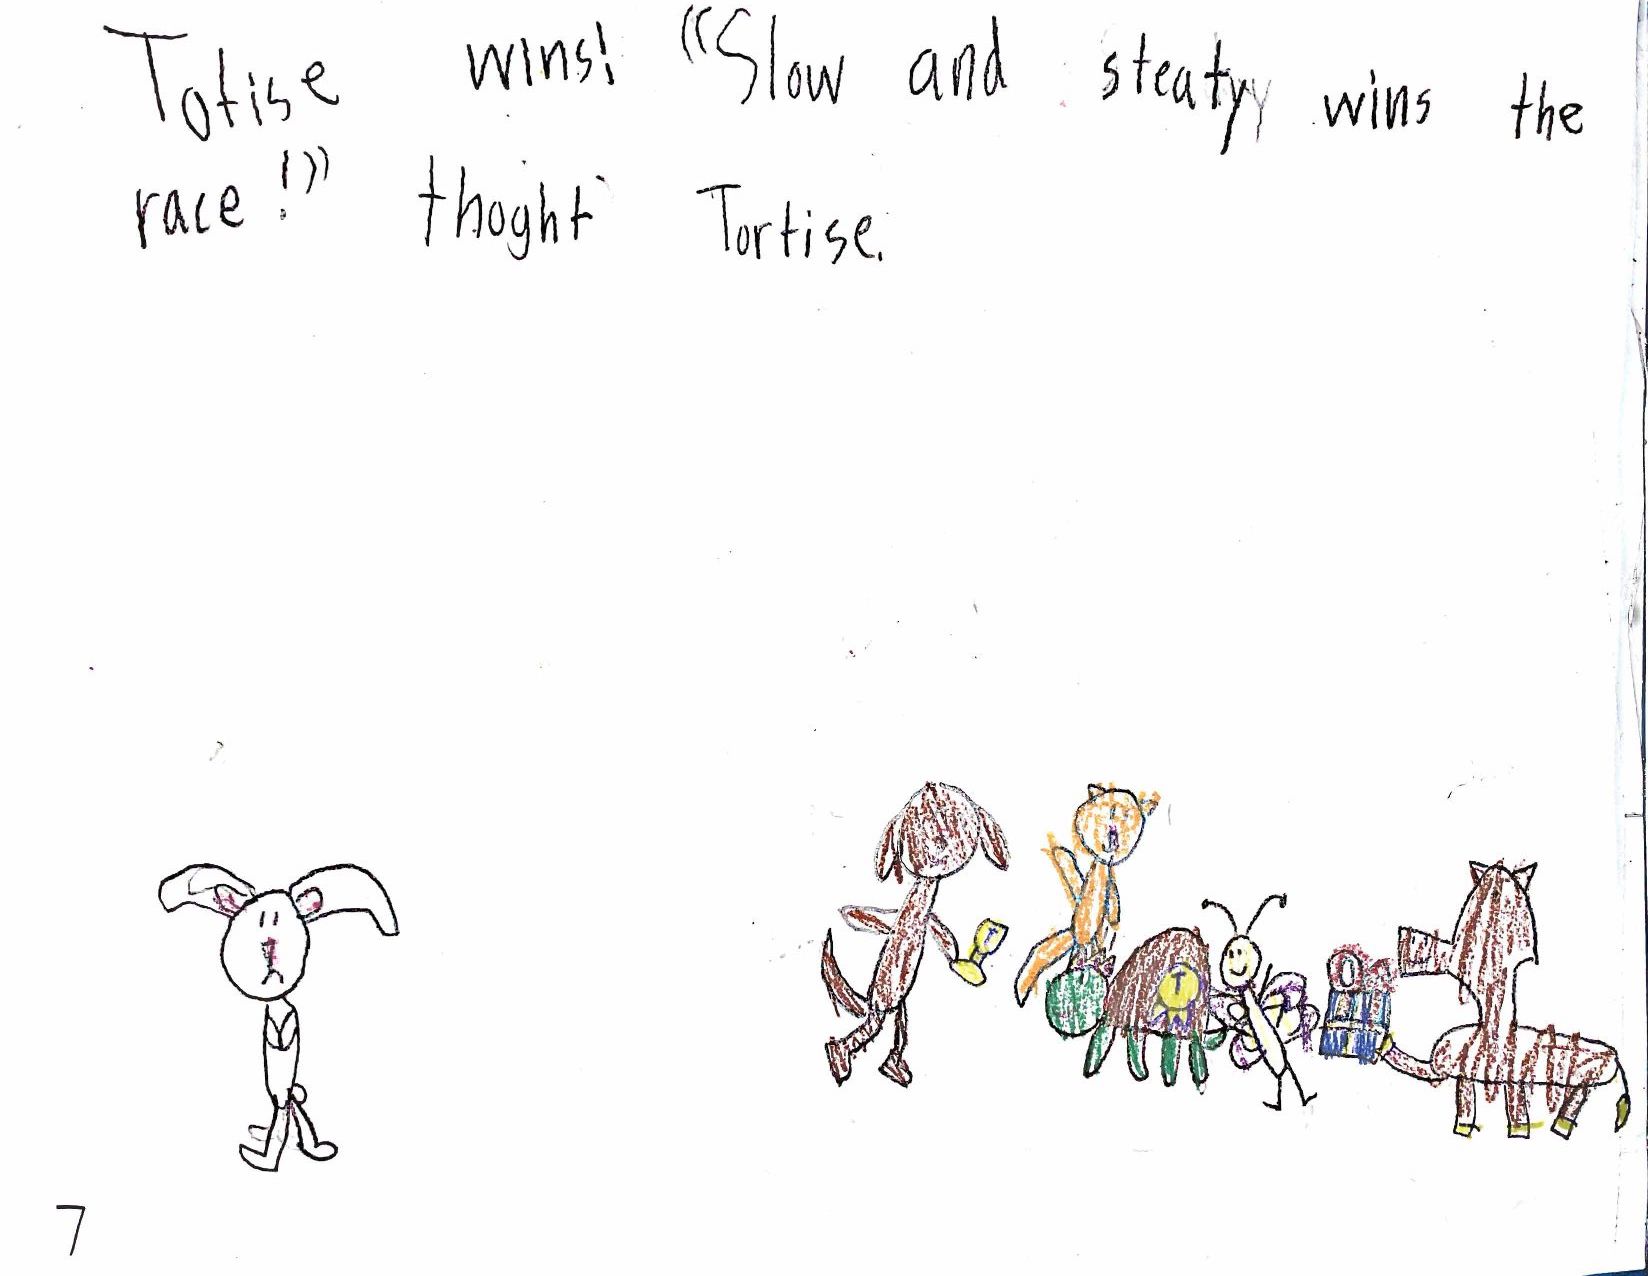 Totise wins! "Slow and steaty wins the
race!" thoght Tortise.
T
7